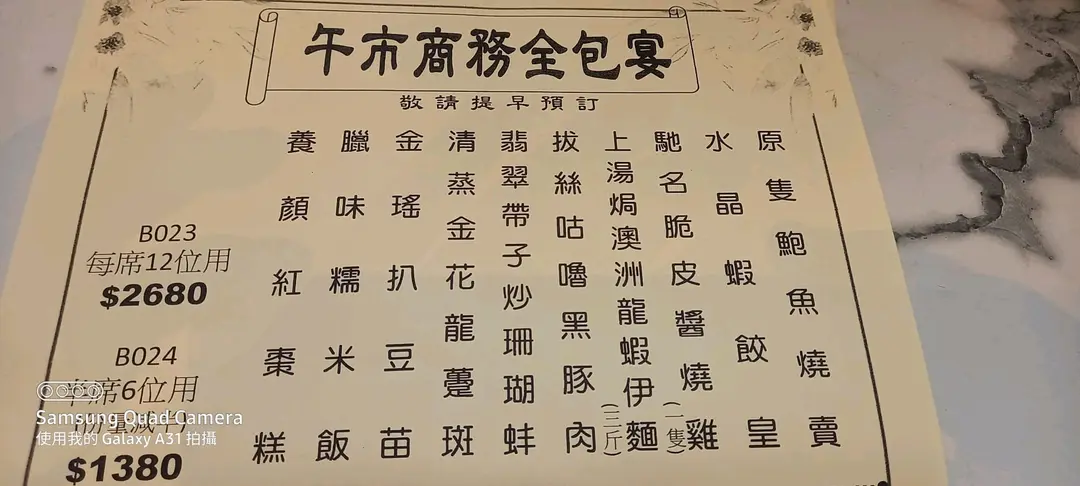 午市商務全包宴
敬請提早預訂
原隻鮑魚燒賣
水晶蝦餃皇
馳名脆皮醬燒雞(一隻)
上湯焗澳洲龍蝦伊麵(三斤)
拔絲咕嚕黑豚肉
翡翠帶子炒珊瑚蚌
清蒸金花龍躉斑
金瑤扒豆苗
臘味糯米飯
養顏紅棗糕
B023
每席12位用
$2680
B024
半席6位用
$1380
Samsung Quad Camera
使用我的 Galaxy A31 拍攝